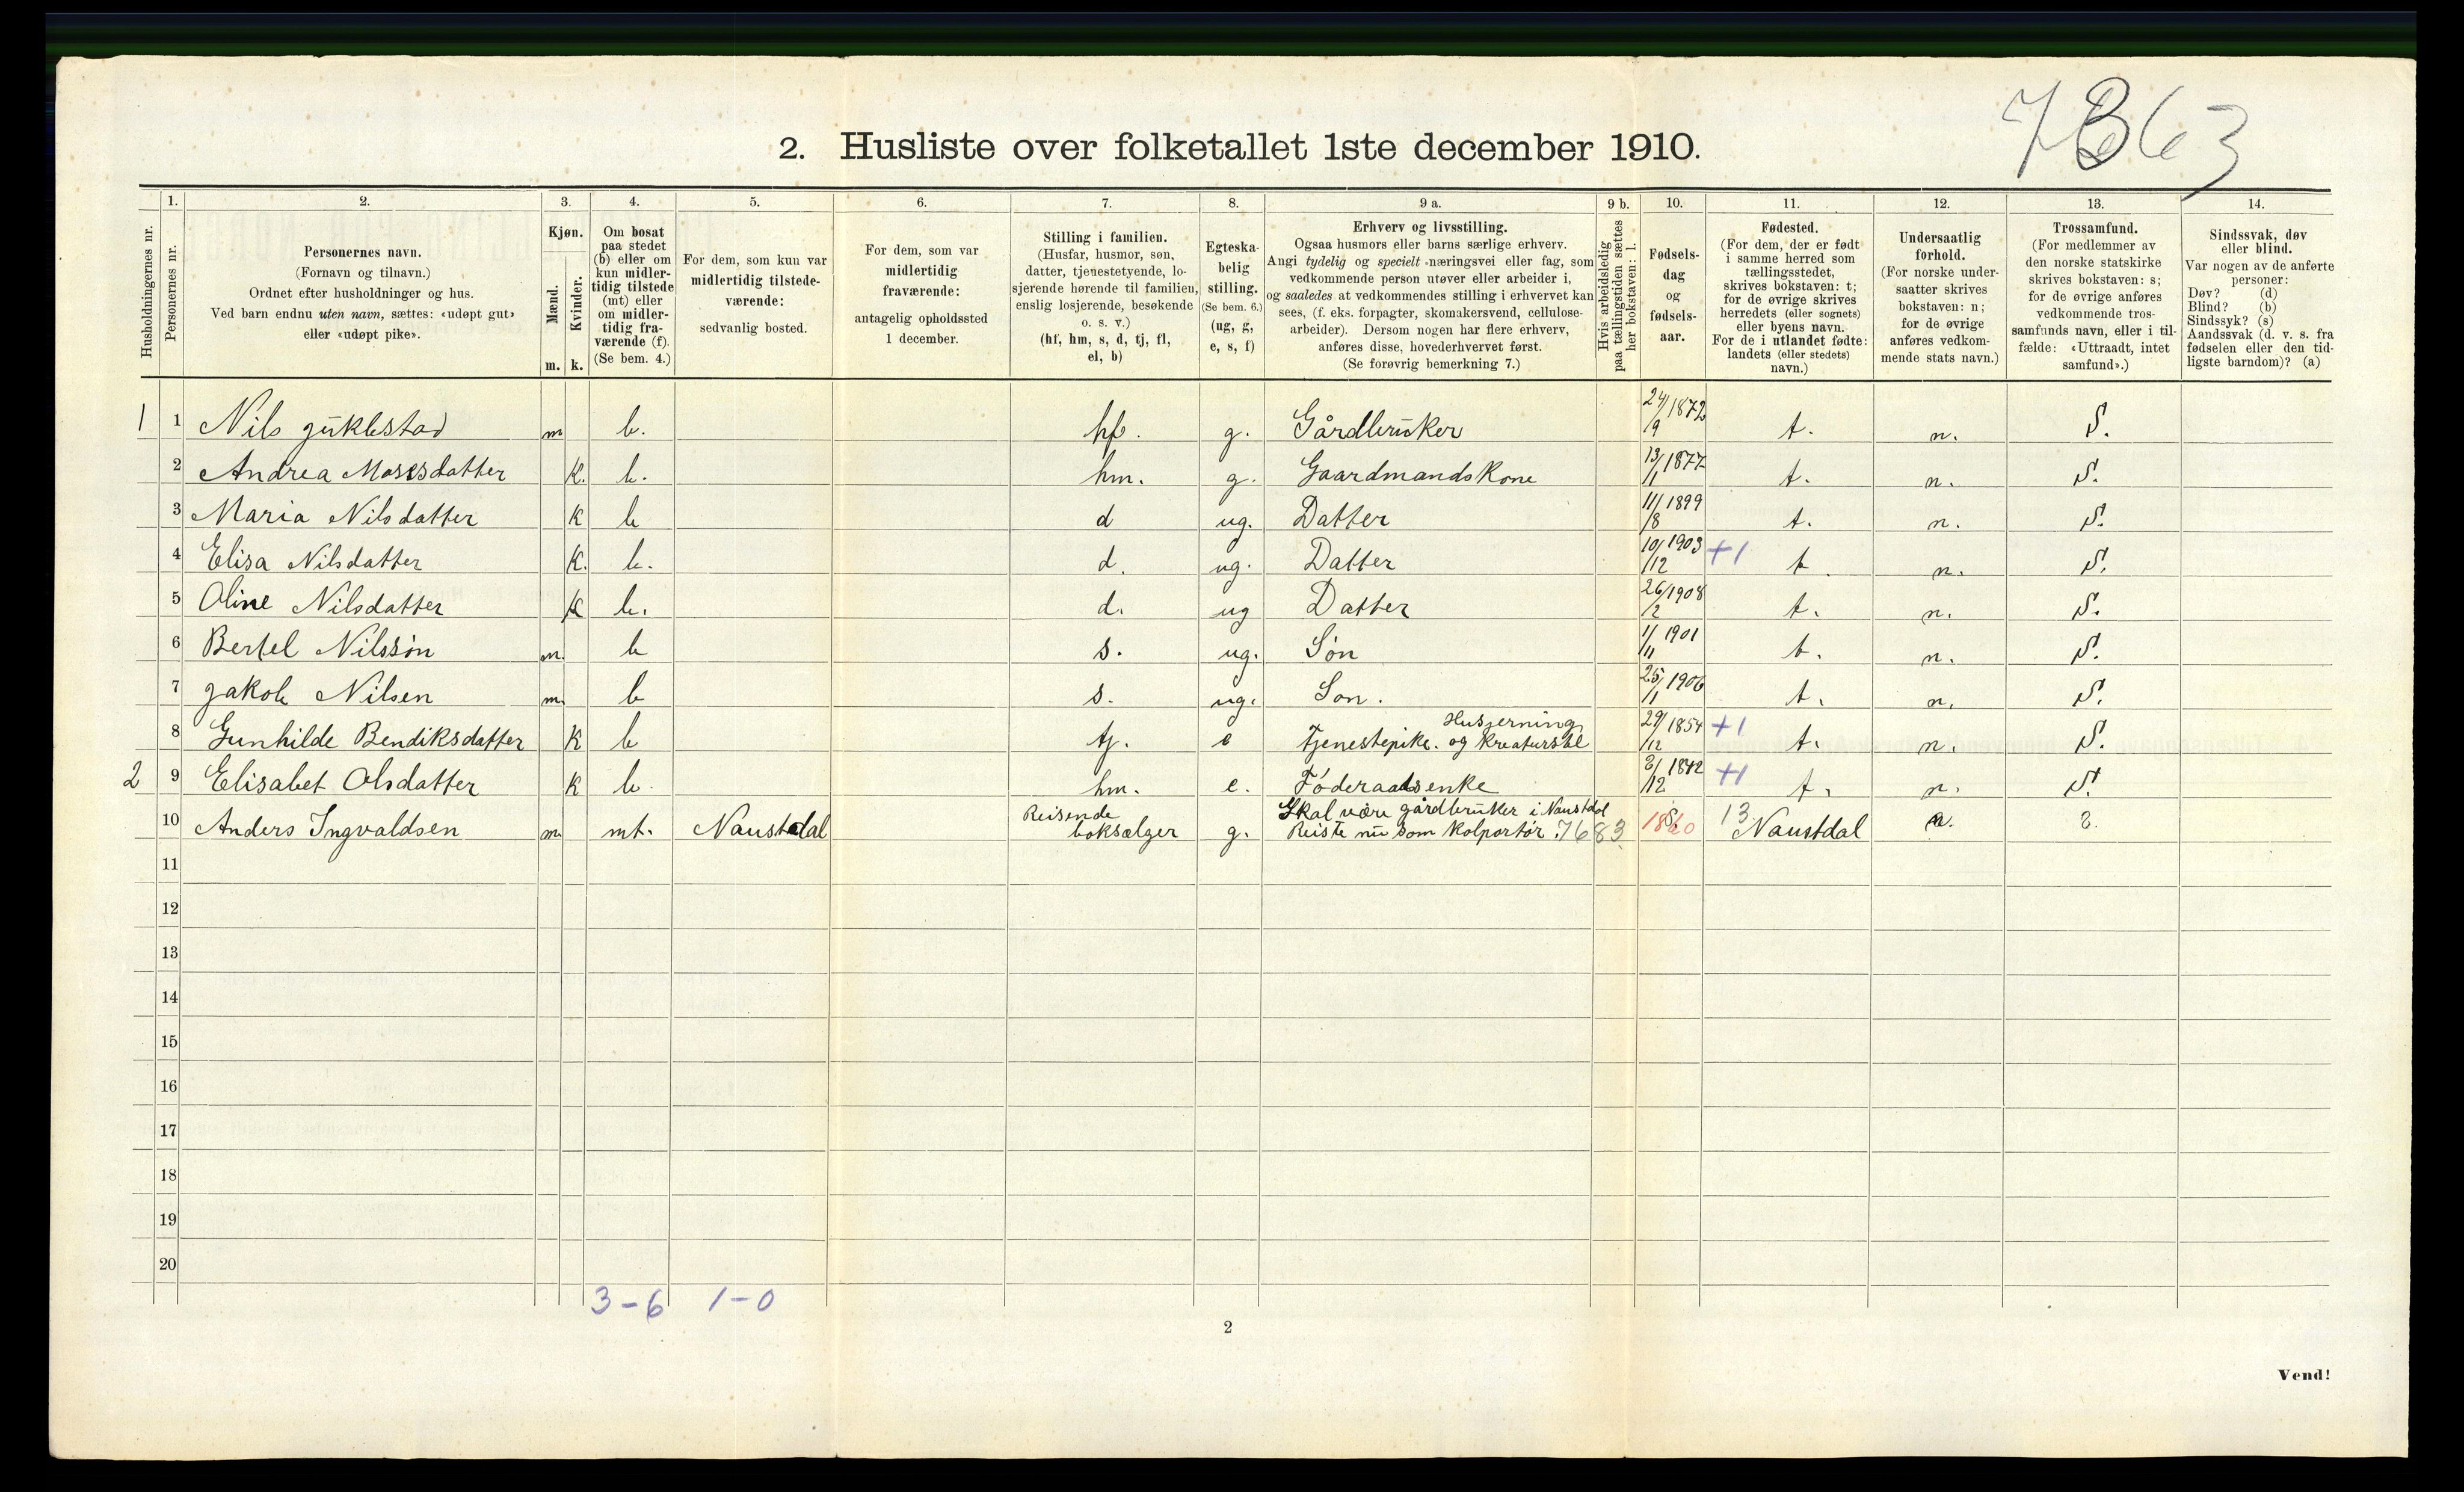 2. Husliste over folketallet 1ste december 1910.
Husholdningernes nr.
1. Personernes nr.
2. Personernes navn.
(Fornavn og tilnavn.)
Ordnet efter husholdninger og hus.
Ved barn endnu uten navn, sættes: «udøpt gut»
eller «udøpt pike».
3. Kjøn.
Mænd. m.
Kvinder. k.
4. Om bosat
paa stedet
(b) eller om
kun midler-
tidig tilstede
(mt) eller
om midler-
tidig fra-
værende (f).
(Se bem. 4.)
5. For dem, som kun var
midlertidig tilstede-
værende:
sedvanlig bosted.
6. For dem, som var
midlertidig
fraværende:
antagelig opholdssted
1 december.
7. Stilling i familien.
(Husfar, husmor, søn,
datter, tjenestetyende, lo-
sjerende hørende til familien,
enslig losjerende, besøkende
o. s. v.)
(hf, hm, s, d, tj, fl,
el, b)
8. Egteska-
belig
stilling.
(Se bem. 6.)
(ug, g,
e, s, f)
9 a. Erhverv og livsstilling.
Ogsaa husmors eller barns særlige erhverv.
Angi tydelig og specielt næringsvei eller fag, som
vedkommende person utøver eller arbeider i,
og saaledes at vedkommendes stilling i erhvervet kan
sees, (f. eks. forpagter, skomakersvend, cellulose-
arbeider). Dersom nogen har flere erhverv,
anføres disse, hovederhvervet først.
(Se forøvrig bemerkning 7.)
9 b. Hvis arbeidsledig
paa tællingstiden sættes
her bokstaven: l.
10. Fødsels-
dag
og
fødsels-
aar.
11. Fødested.
(For dem, der er født
i samme herred som
tællingsstedet,
skrives bokstaven: t;
for de øvrige skrives
herredets (eller sognets)
eller byens navn.
For de i utlandet fødte:
landets (eller stedets)
navn.)
12. Undersaatlig
forhold.
(For norske under-
saatter skrives
bokstaven: n;
for de øvrige
anføres vedkom-
mende stats navn.)
13. Trossamfund.
(For medlemmer av
den norske statskirke
skrives bokstaven: s;
for de øvrige anføres
vedkommende tros-
samfunds navn, eller i til-
fælde: «Uttraadt, intet
samfund».)
14. Sindssvak, døv
eller blind.
Var nogen av de anførte
personer:
Døv? (d)
Blind? (b)
Sindssyk? (s)
Aandssvak (d. v. s. fra
fødselen eller den tid-
ligste barndom)? (a)
1 1 Nils Jüklestad m b. hf. g. Gårdbrüker 24/9 1872 t. n. S.
2 Andrea Mosesdatter K. b. hm. g. Gaardmandskone 13/1 1877 t. n. S.
3 Maria Nilsdatter K b d ug. Datter 11/8 1899 t. n. S.
4 Elisa Nilsdatter K. b. d. ug. Datter 10/12 1903 +1 t. n. S.
5 Oline Nilsdatter K b. d. ug Datter 26/2 1908 t. n. S.
6 Bertel Nilssøn m. b s. ug. Søn 1/11 1901 t. n. S.
7 Jakob Nilsen m. b s. ug. Søn. 25/1 1906 t. n. S.
8 Gunhilde Bendiksdatter K b tj. e Tjenestepike. Husgerning og Kreaturstel 29/12 1854 +1 t. n. S.
2 9 Elisabet Olsdatter K b. hm. e. Føderaadsenke 3/12 1842 +1 t. n. S.
10 Anders Ingvaldsen m. mt. Naustdal Reisende boksælger g. Skal være gårdbrüker i Naustdal
Reiste nü som Kolportør. 7683 13 Naustdal n.
11
12
13
14
15
16
17
18
19
20
3-6 1-0
2
Vend!